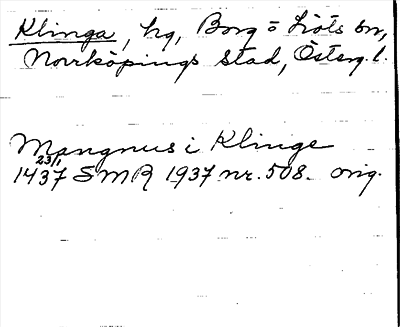 Klinga, hg, Borg o Löts sn,
Norrköpings stad, Österg. l.
Mangnus i Klinge
23/1
1437 SMR 1937 nr. 508. orig.